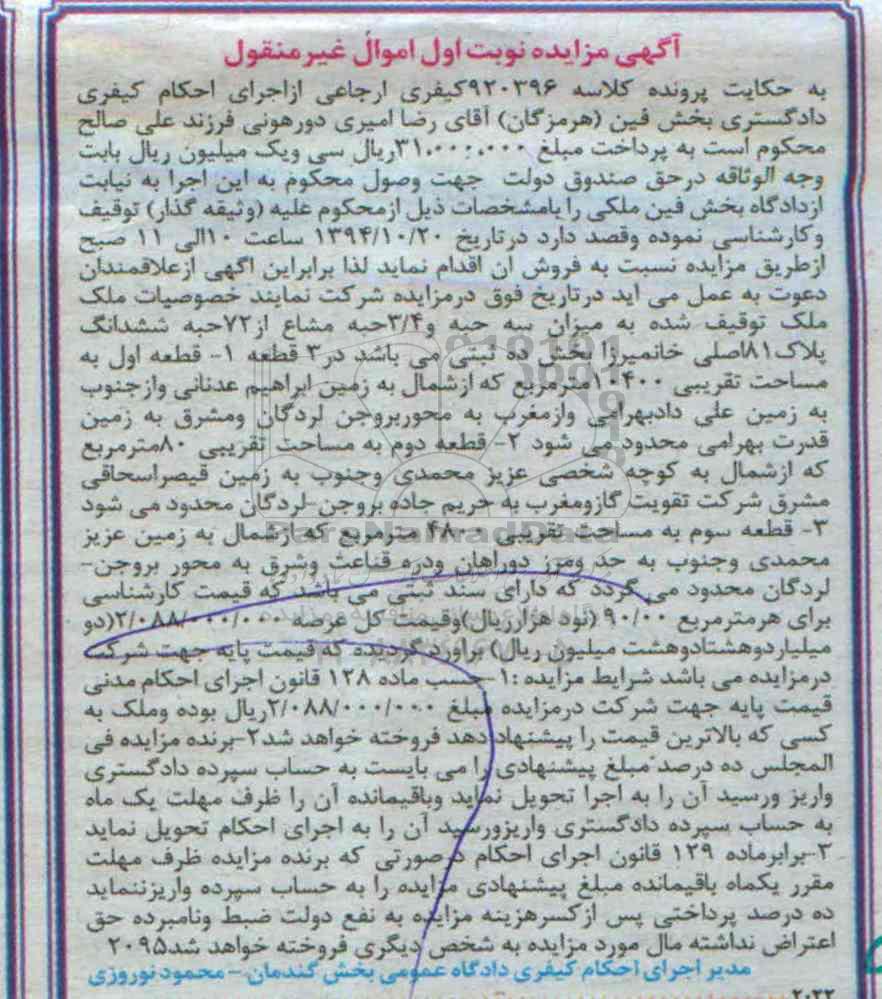 آگهی مزایده نوبت اول اموال غیرمنقول
به حکایت پرونده کلاسه ۹۲۰۳۹۶کیفری ارجاعی ازاجرای احکام کیفری
دادگستری بخش فین (هرمزگان) آقای رضا امیری دورهونی فرزند علی صالح
محکوم است به پرداخت مبلغ ۳۱.۰۰۰.۰۰۰ریال سی ویک میلیون ریال بابت
وجه الوثاقه درحق صندوق دولت جهت وصول محکوم به این اجرا به نیابت
ازدادگاه بخش فین ملکی را بامشخصات ذیل ازمحکوم علیه (وثیقه گذار) توقیف
وکارشناسی نموده وقصد دارد درتاریخ ۱۳۹۴/۱۰/۲۰ ساعت ۱۰الی ۱۱ صبح
ازطریق مزایده نسبت به فروش ان اقدام نماید لذا برابراین اگهی ازعلاقمندان
دعوت به عمل می اید درتاریخ فوق درمزایده شرکت نمایند خصوصیات ملک
ملک توقیف شده به میزان سه حبه و۳/۴حبه مشاع از۷۲حبه ششدانگ
پلاک۸۱اصلی خانمیرزا بخش ده ثبتی می باشد در۳ قطعه ۱- قطعه اول به
مساحت تقریبی ۱۰۴۰۰مترمربع که ازشمال به زمین ابراهیم عدنانی وازجنوب
به زمین علی دادبهرامی وازمغرب به محوربروجن لردگان ومشرق به زمین
قدرت بهرامی محدود می شود ۲- قطعه دوم به مساحت تقریبی ۸۰۰مترمربع
که ازشمال به کوچه شخصی عزیز محمدی وجنوب به زمین قیصراسحاقی
مشرق شرکت تقویت گازومغرب به حریم جاده بروجن-لردگان محدود می شود
۳- قطعه سوم به مساحت تقریبی ۴۸۰۰ مترمربع که ازشمال به زمین عزیز
محمدی وجنوب به حد ومرز دوراهان ودره قناعت وشرق به محور بروجن-
لردگان محدود می گردد که دارای سند ثبتی می باشد که قیمت کارشناسی
برای هرمترمربع ۹۰/۰۰ (نود هزارریال)وقیمت کل عرصه ۲/۰۸۸/۰۰۰/۰۰۰(دو
میلیاردوهشتادوهشت میلیون ریال) براورد گردیده که قیمت پایه جهت شرکت
درمزایده می باشد شرایط مزایده :۱-حسب ماده ۱۲۸ قانون اجرای احکام مدنی
قیمت پایه جهت شرکت درمزایده مبلغ ۲/۰۸۸/۰۰۰/۰۰۰ریال بوده وملک به
کسی که بالاترین قیمت را پیشنهاد دهد فروخته خواهد شد۲-برنده مزایده فی
المجلس ده درصد مبلغ پیشنهادی را می بایست به حساب سپرده دادگستری
واریز ورسید آن را به اجرا تحویل نماید وباقیمانده آن را ظرف مهلت یک ماه
به حساب سپرده دادگستری واریزورسید آن را به اجرای احکام تحویل نماید
۳-برابرماده ۱۲۹ قانون اجرای احکام درصورتی که برنده مزایده ظرف مهلت
مقرر یکماه باقیمانده مبلغ پیشنهادی مزایده را به حساب سپرده واریزننماید
ده درصد پرداختی پس ازکسرهزینه مزایده به نفع دولت ضبط ونامبرده حق
اعتراض نداشته مال مورد مزایده به شخص دیگری فروخته خواهد شد۲۰۹۵
مدیر اجرای احکام کیفری دادگاه عمومی بخش گندمان - محمود نوروزی